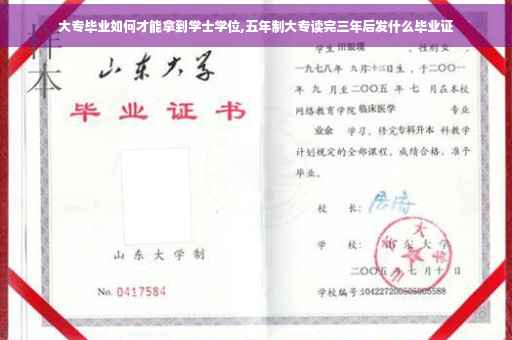 大专毕业如何才能拿到学士学位,五年制大专读完三年后发什么毕业证
样本
山东大学
毕业证书
山东大学制
No. 0417584
学生
一九七八年 九月十三日生，于二〇〇一
年 九 月至二〇〇五 年 七 月在本校
网络教育学院 临床医学 专业
业余 学习，修完专科升本科教学
计划规定的全部课程，成绩合格，准予
毕业。
校 长：
学 校：山东大学
二〇〇五年七月十日
学校编号：